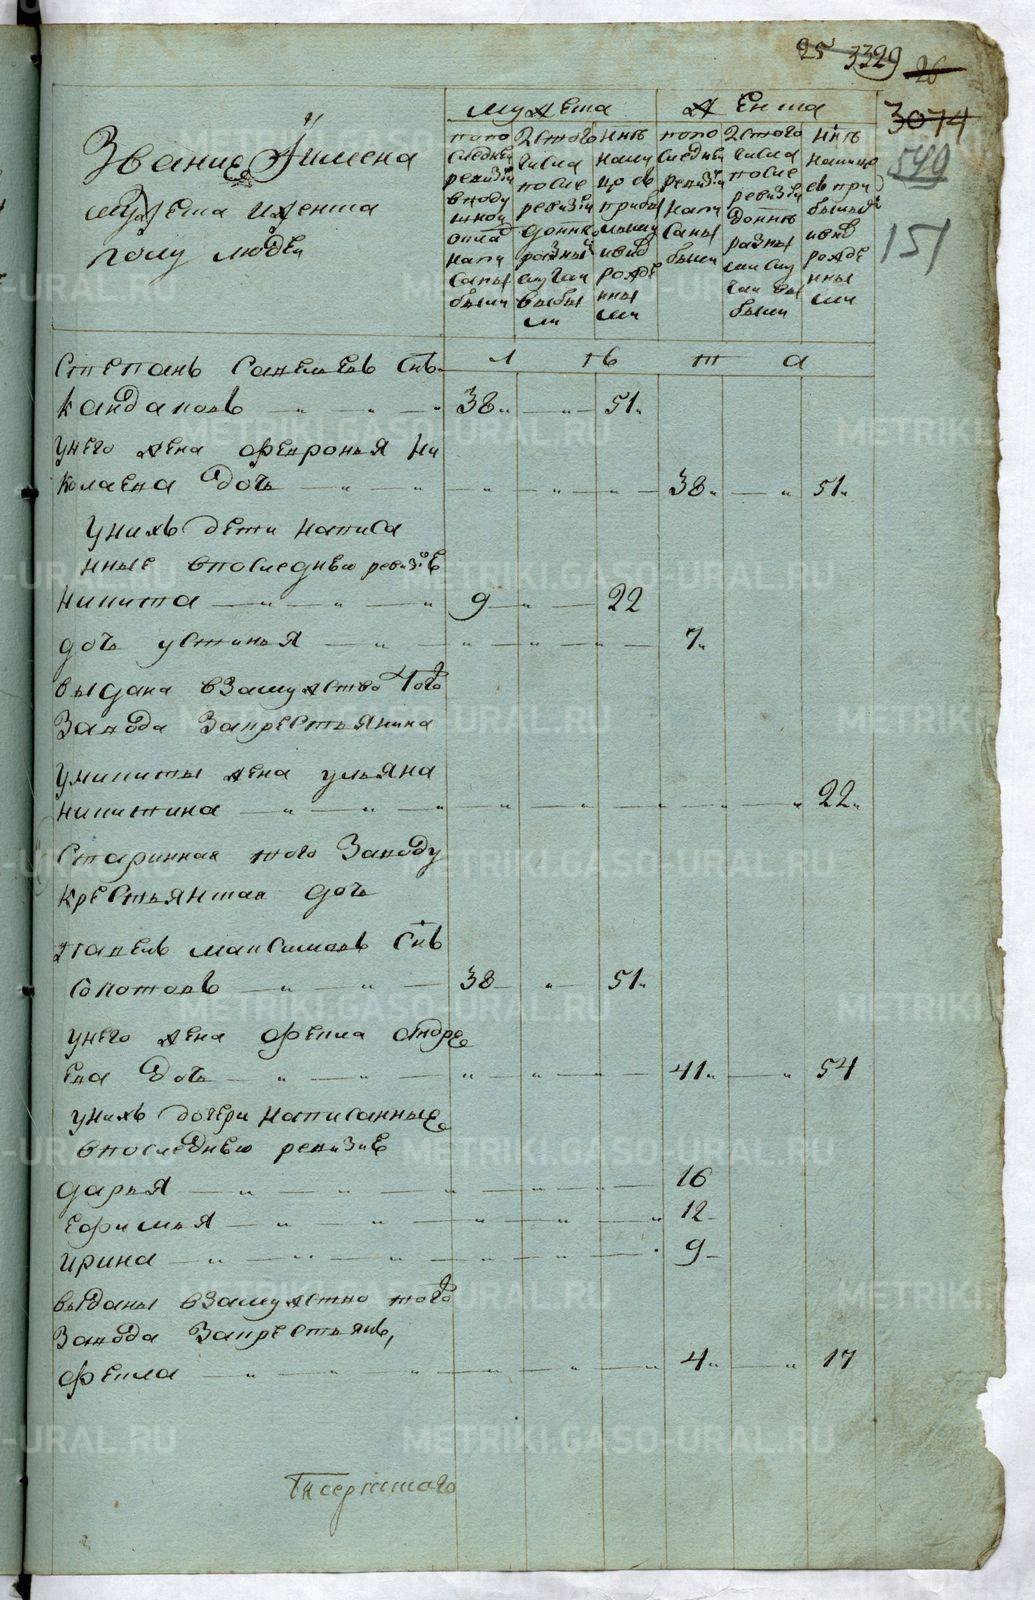 25 3329 26
3074
549
151
Звание Имена
мужеска и женска
полу людей
мужеска
женска
по по
следней
ревизии
в поду
шной
оклад
напи
саны
были
Із того
числа
после
ревизии
донне
разный
случаи
выбы
ли
Ннѣ
на ли
цо съ
прибы
лыми
и внов
рожде
нны
ми
по по
следней
ревизии
напи
саны
были
Із того
числа
после
ревизии
донне
разны
ми слу
чаи вы
были
Ннѣ
налицо
съ при
былыми
и внов
рожде
нны
ми
л ѣ т а
Степанъ Савельевъ Снъ
Кандаковъ 38 51
у него жена Февронья Ни
колаева дочь 38 51
у нихъ дети написа
нные в последнею ревизие
Никита 9 22
дочь устинья 7
выдана в замужство того
завода за крестьянина
у Никиты жена ульяна
никитина 22
старинная того заводу
крестьянская дочь
Павелъ Максимовъ Снъ
Сокотовъ 38 51
у него жена Фекла Андре
ева дочь 41 54
у нихъ дочери написанные
в последнею ревизие
дарья 16
Ефимья 12
Ирина 9
выданы в замужство того
завода за крестьянъ
Фекла 4 17
METRIKI.GASO-URAL.RU